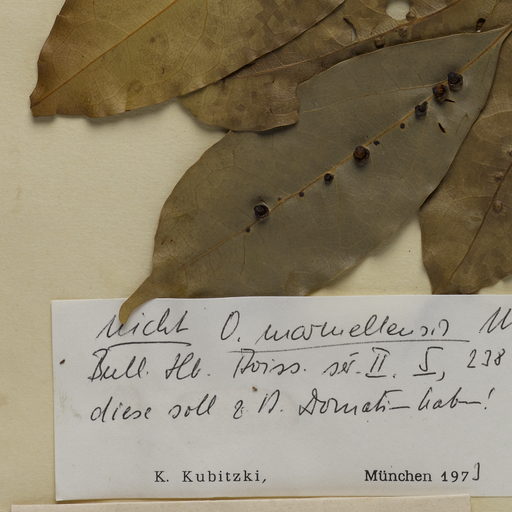 nicht O. marmellensis
Bull. Hb. Boiss. sér. II. 5, 238
diese soll z.B. Domatien haben!
K. Kubitzki, München 1973